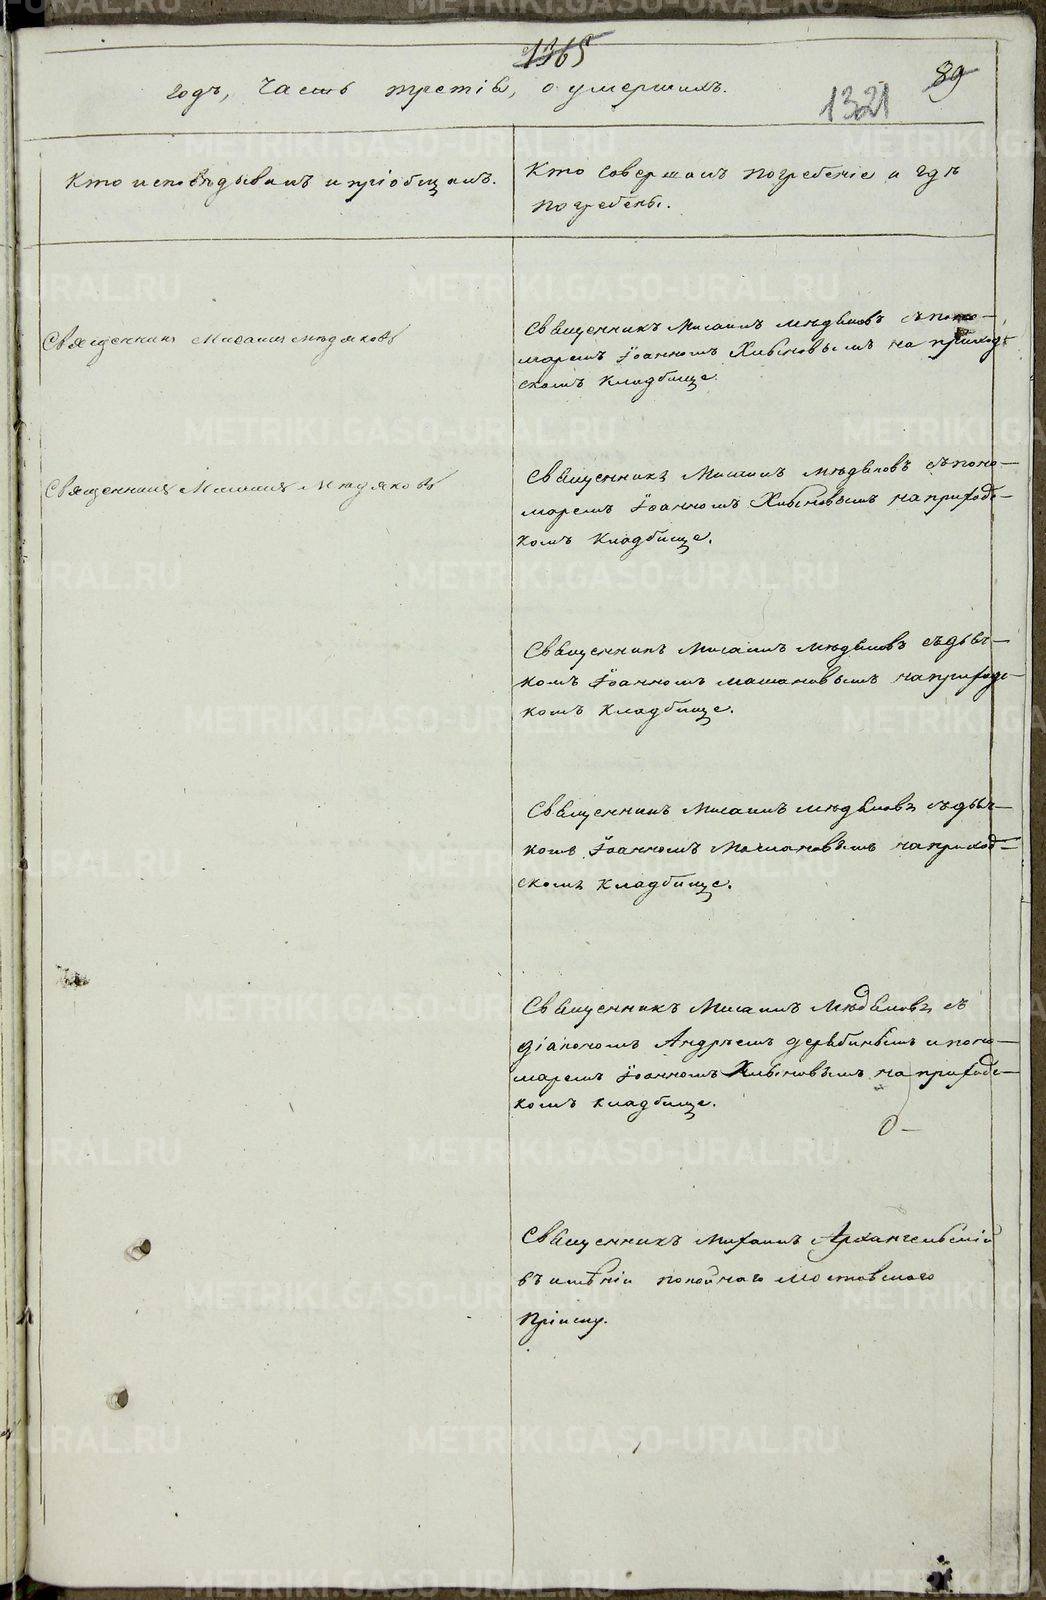 1365
89
1321
годъ, Часть третія, о умершихъ.
Кто исповѣдывалъ и пріобщалъ.
Кто совершалъ погребеніе и гдѣ
погребены.
Священникъ Михаилъ Мюдяковъ
Священникъ Михаилъ Мюдяковъ съ поно-
маремъ Іоанномъ Хлыновымъ на приход-
скомъ кладбище.
Священникъ Михаилъ Мюдяковъ
Священникъ Михаилъ Мюдяковъ съ поно-
маремъ Іоанномъ Хлыновымъ на приходс-
комъ кладбище.
Священникъ Михаилъ Мюдяковъ съ дьяч-
комъ Іоанномъ на приходс-
комъ кладбище.
Священникъ Михаилъ Мюдяковъ съ дьяч-
комъ Іоанномъ на приход-
скомъ кладбище.
Священникъ Михаилъ Мюдяковъ съ
діакономъ Андреемъ Дерябинымъ и поно-
маремъ Іоанномъ Хлыновымъ на приходс-
комъ кладбище.
Священникъ Михаилъ Архангельскій
въ имѣніи
пріиску.
METRIKI.GASO-URAL.RU